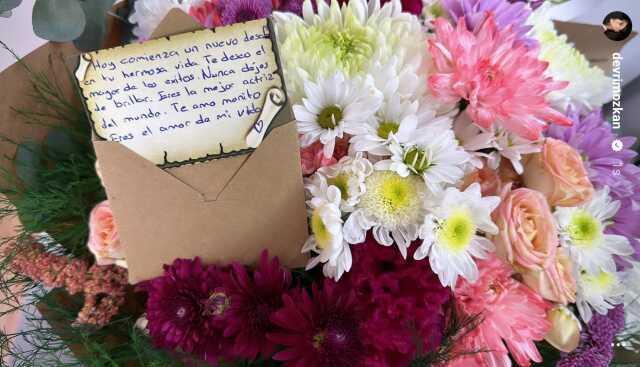 Hoy comienza un nuevo desafio
en tu hermosa vida. Te deseo el
mayor de los exitos. Nunca dejes
de brillar. Eres la mejor actriz
del mundo. Te amo monito
Eres el amor de mi vida
devrimozkan